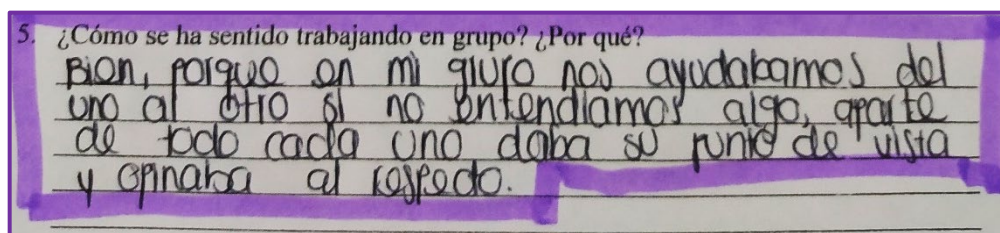 5. ¿Cómo se ha sentido trabajando en grupo? ¿Por qué?
Bien, porque en mi grupo nos ayudabamos del
uno al otro si no entendiamos algo, aparte
de todo cada uno daba su punto de vista
y opinaba al respecto.